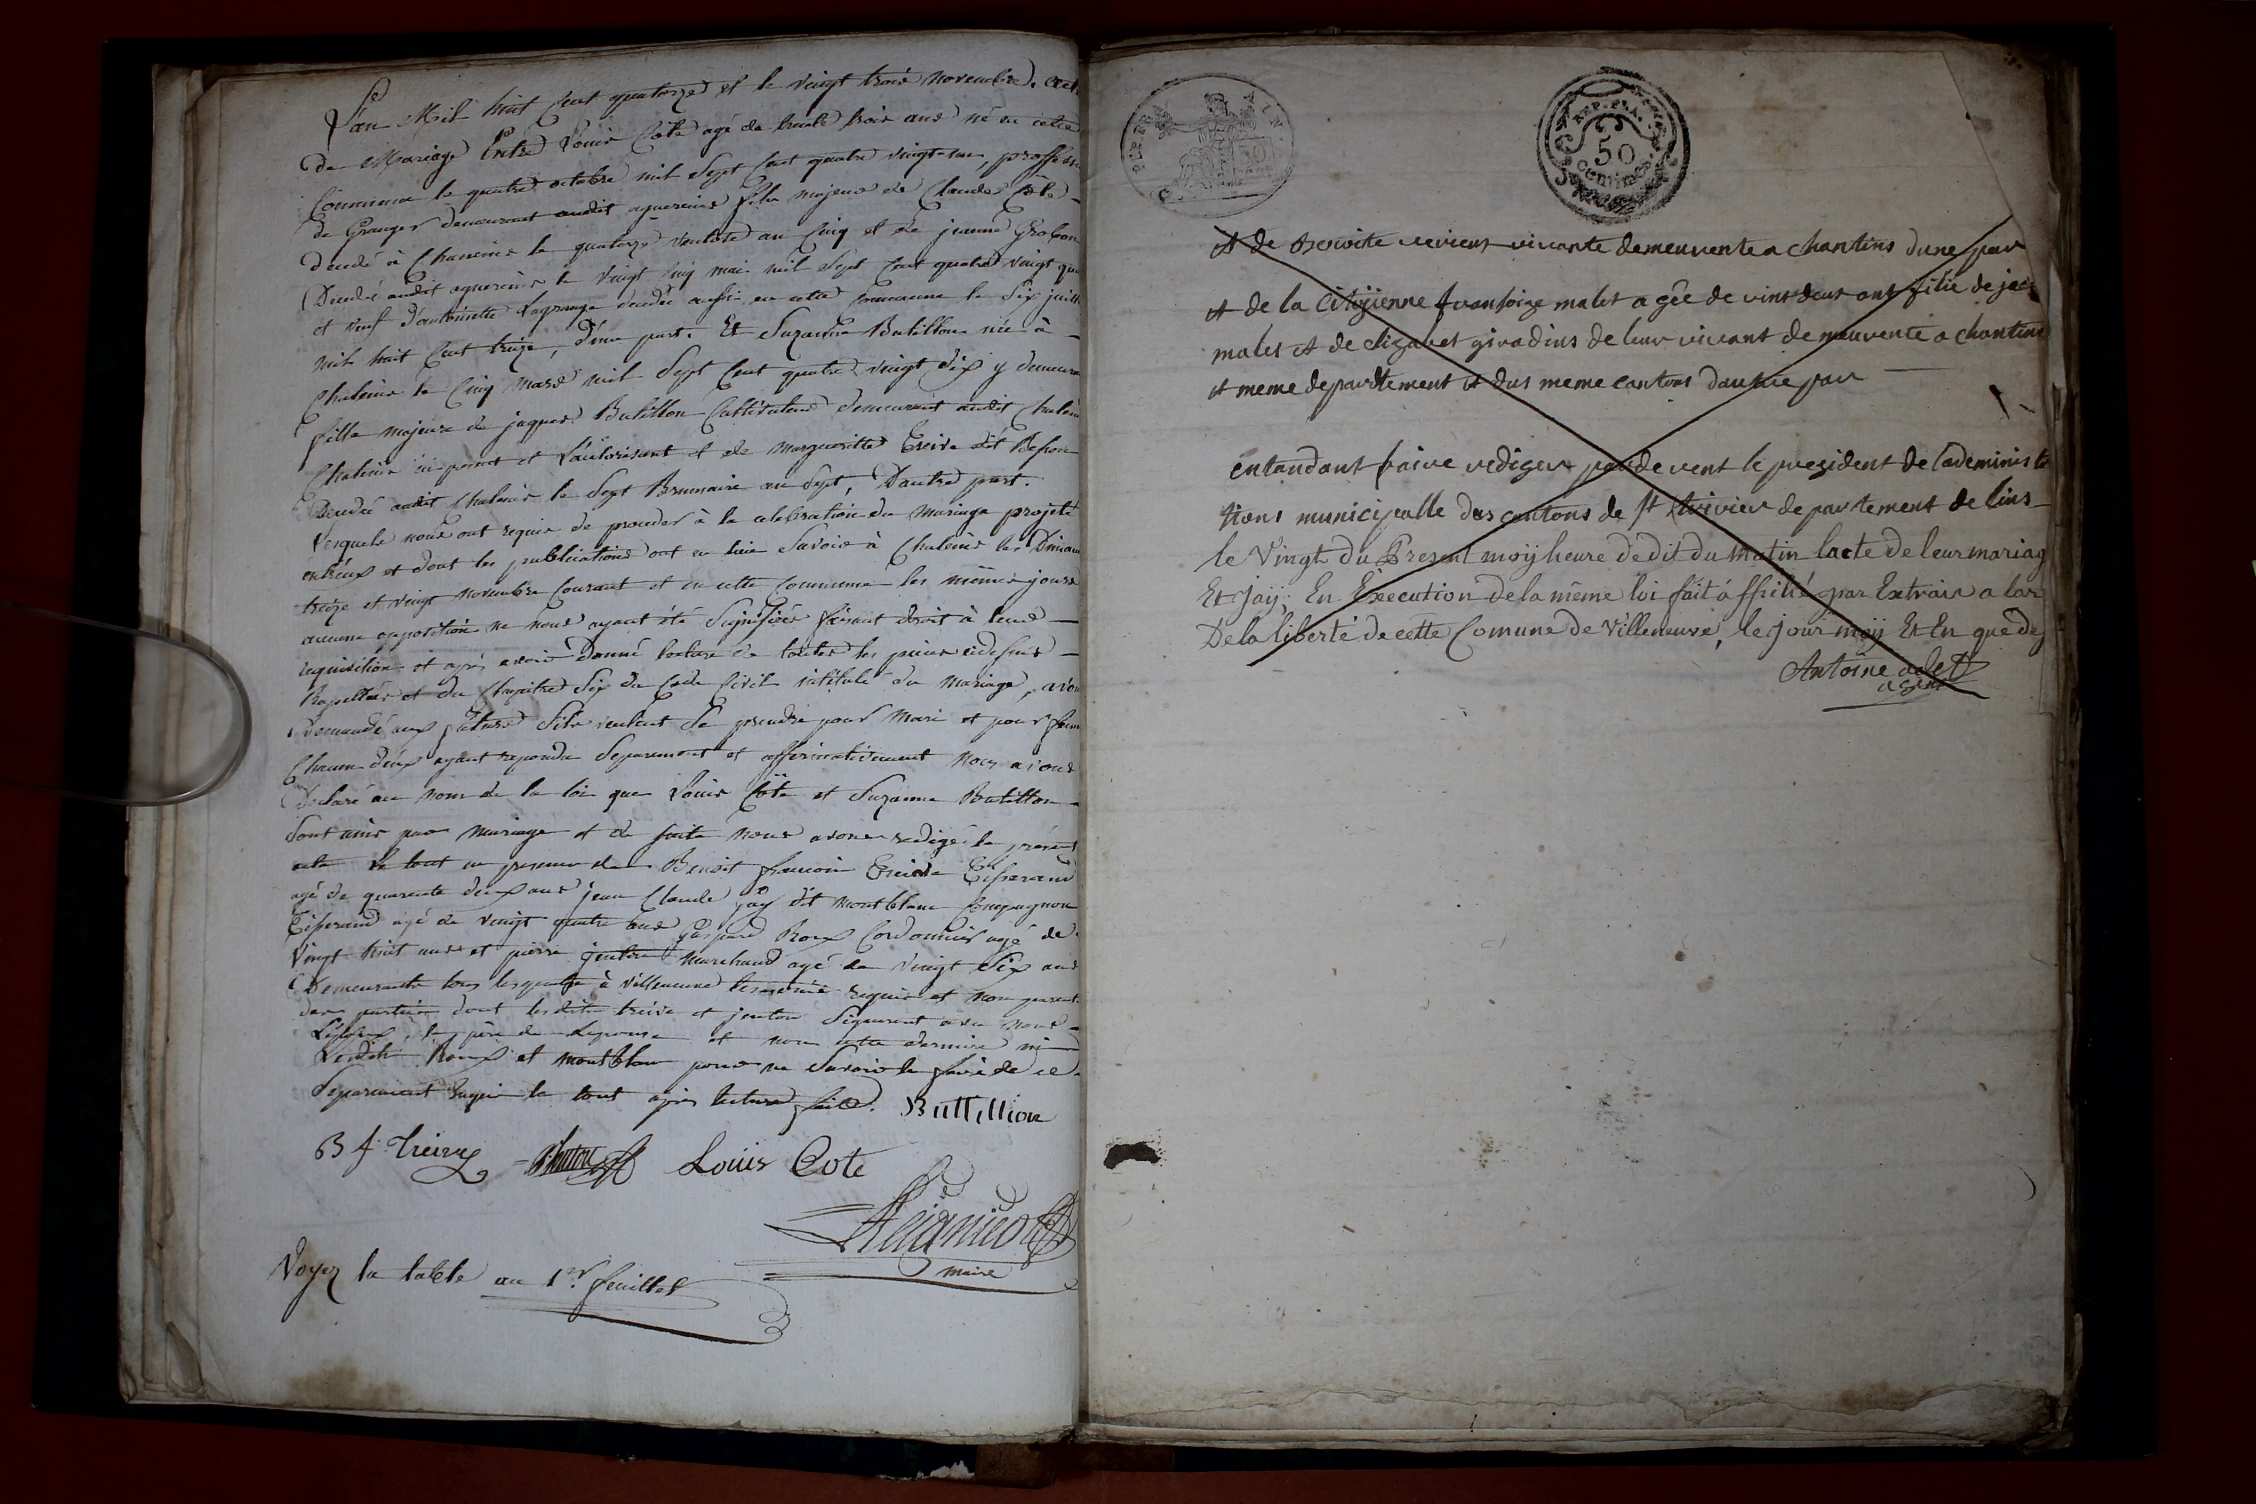 L'an Mil huit Cent quatorze et le vingt trois novembre. acte
de Mariage Entre Louis Côte agé de trente trois ans né en cette
Commune le quatre octobre mil Sept Cent quatre vingt-un, profession
de Granger demeurant audit agnereins fils majeur de Claude Côte
décédé à Chaneins le quatorze ventose an Cinq et de jeanne
Décédée audit agnereins le vingt Cinq mai mil Sept Cent quatre vingt
et veuf d'antoinette Lagrange décédée aussi en cette Commune le Six juillet
mil huit Cent treize, d'une part. Et Suzanne Butillon née à
Chaleins le Cinq Mars mil Sept Cent quatre vingt dix y demeurant
fille majeure de jaques Butillon Cultivateur demeurant audit Chaleins
Chaleins ici present et L'autorisant et de Margueritte Treive dit
Décédée audit Chaleins le Sept Brumaire an Sept, D'autre part.
Lesquels nous ont requis de proceder à la celebration du Mariage projeté
entr'eux et dont les publications ont eu lieu Savoir à Chaleins les Dimanches
treize et vingt novembre Courant et en cette Commune les mêmes jours
aucune opposition ne nous ayant été Signifiée faisant droit à leur
requisition et après avoir Donné lecture de toutes les pièces cidessus
Rapellées et du Chapitre Six du Code Civil intitulé du Mariage, avons
Demandé aux futurs S'ils veulent Se prendre pour Mari et pour femme
Chacun d'eux ayant repondu Separement et affirmativement Nous avons
Declaré au nom de la loi que Louis Côte et Suzanne Butillon
Sont unis par Mariage et de suite Nous avons redigé le présent
acte le tout en presence de Benoit françois Treive Tisserand
agé de quarante deux ans jean Claude jay dit Montblanc Compagnon
Tisserand agé de vingt quatre ans Gaspard Roux Cordonnier agé de
vingt huit ans et pierre jenton Marchand agé de vingt Six ans
Demeurants tous les quatre à Villeneuve temoins requis et non parents
des parties dont lesdits treive et jenton Signeront avec nous
L'époux, le père de L'epouse et non cette derniere ni
Lesdits Roux et Montblanc pour ne Savoir le faire de ce
Separement Enquis le tout après lecture faite. Buttillion
B f Treive Louis Cote
maire
Voyez la table au 1er. feuillet
REP. FRA.
50
Centimes
et de Benoite reviens vivante demeurente a chantins dune par
et de la Citoyienne franhoize males agée de vins deus ans filie de jac
males et de elizabet giradins de leur vivant demeurente a chantins
et meme depardtement et dus meme cantons dautre par
entandant faire rediger par devent le president de lademinist
tions municipalle dus cantons de st trivier departement de lins
le Vingt du Present moy heure de dit du matin lacte de leur mariag
Et Jay; En Execution de la même loi fait affiché par Extrais a lar
De la liberté de cette Comune de Villeneuve, le jour moy Et En que de
Antoine
agent